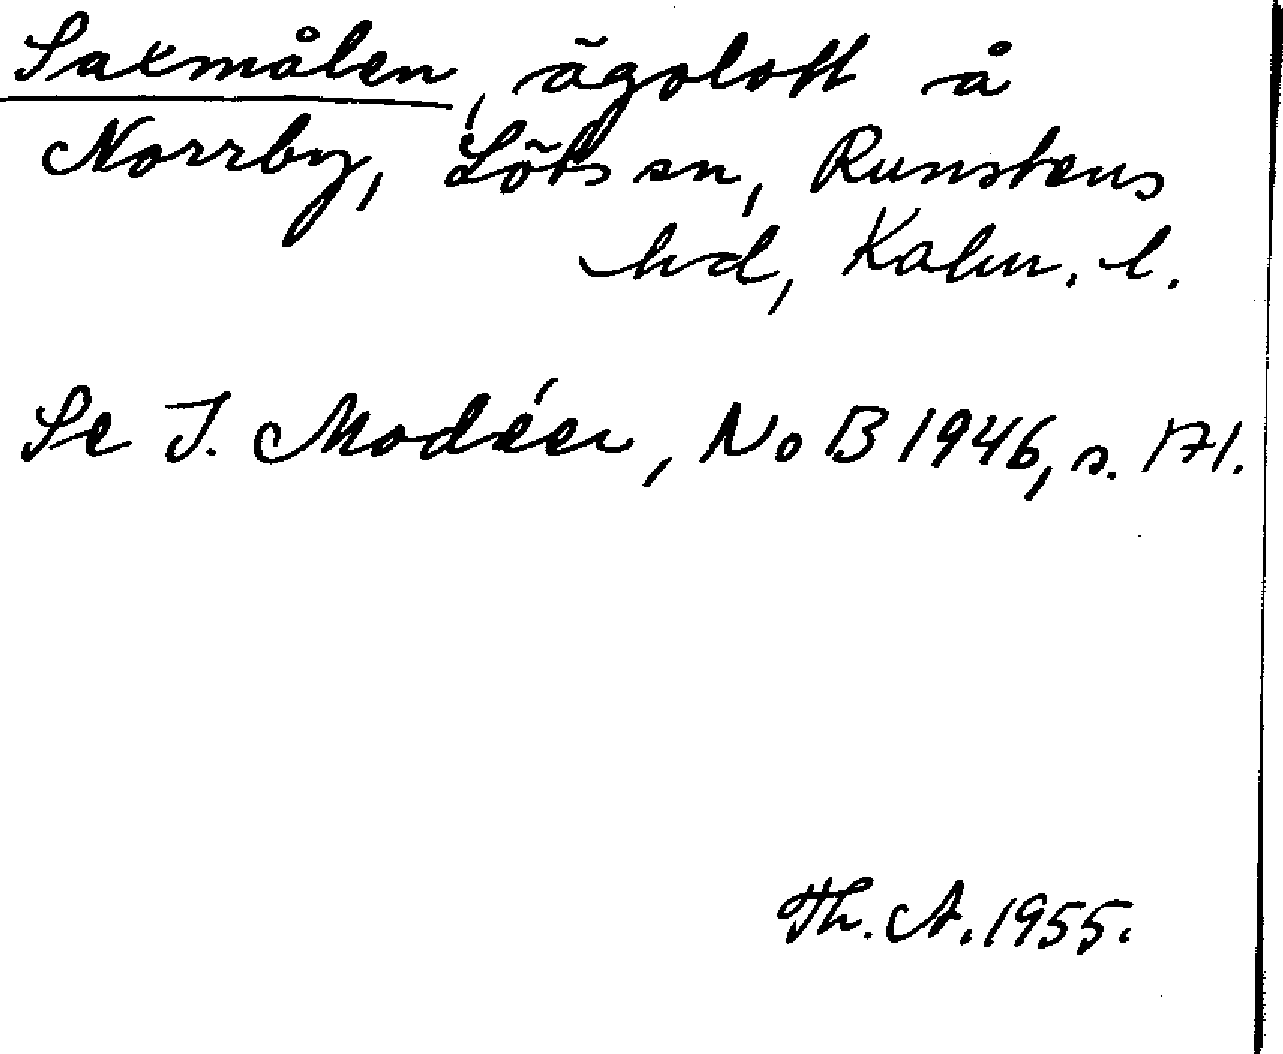 Saxmålen, ägolott å
Norrby, Löts sn, Runstens
hd, Kalm. l.
Se I. Modéer, NoB 1946, s. 171.
Th. A. 1955.